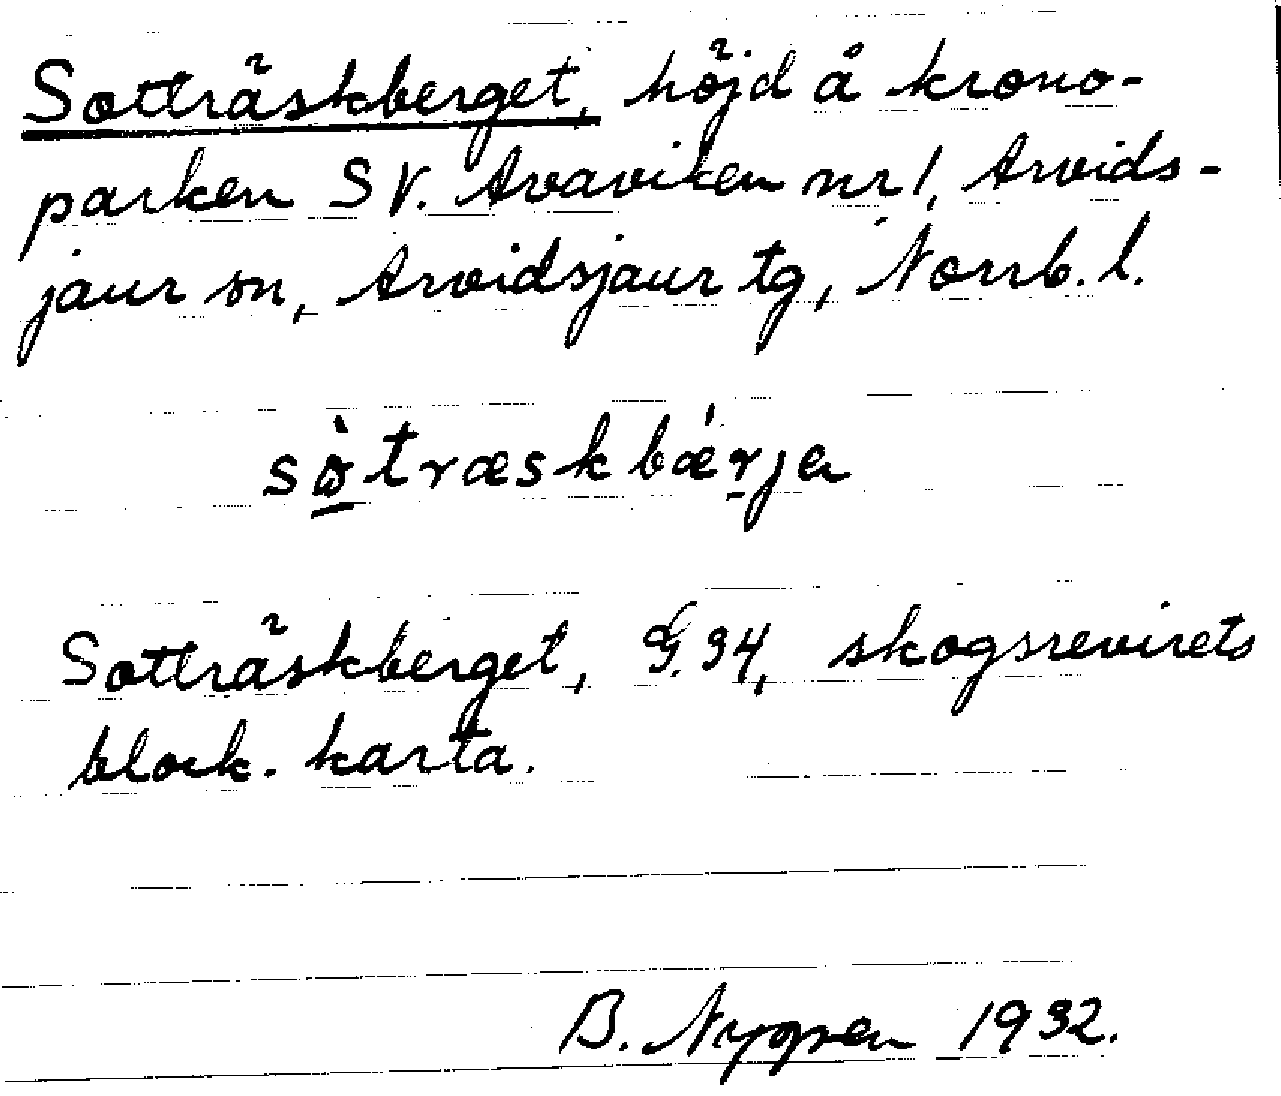 Sotträskberget, höjd å krono-
parken SV. Avaviken nr 1, Arvids-
jaur sn, Arvidsjaur tg, Norrb. l.
sòtræskbǽrjen
Sotträskberget, G. 34, skogsrevirets
block. karta.
B. Nygren 1932.